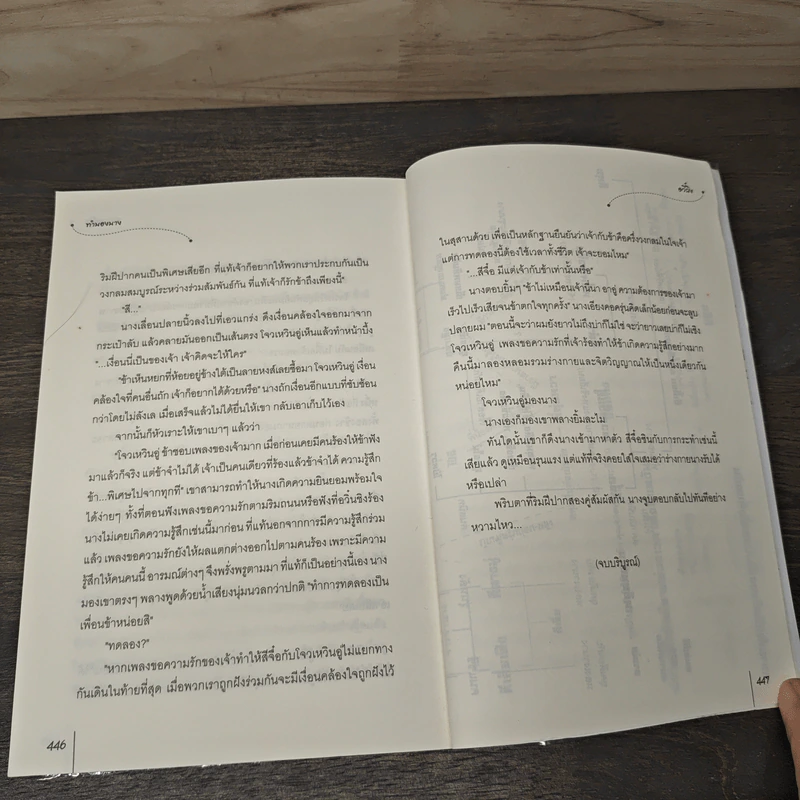 ท้ามองนาง
ริมฝีปากคนเป็นพิเศษเสียอีก ที่แท้เจ้าก็อยากให้พวกเราประกบกันเป็น
วงกลมสมบูรณ์ระหว่างร่วมสัมพันธ์กัน ที่แท้เจ้าก็รักข้าถึงเพียงนี้"
"สี..."
นางเลื่อนปลายนิ้วลงไปที่เอวแกร่ง ดึงเงื่อนคล้องใจออกมาจาก
กระเป๋าลับ แล้วคลายมันออกเป็นเส้นตรง โจวเหวินอู่เห็นแล้วทำหน้าบึ้ง
"...เงื่อนนี่เป็นของเจ้า เจ้าคิดจะให้ใคร"
"ข้าเห็นหยกที่ห้อยอยู่ข้างใต้เป็นลายหงส์เลยซื้อมา โจวเหวินอู่ เงื่อน
คล้องใจที่คนอื่นถัก เจ้าก็อยากได้ด้วยหรือ" นางถักเงื่อนอีกแบบที่ซับซ้อน
กว่าโดยไม่ลังเล เมื่อเสร็จแล้วไม่ได้ยื่นให้เขา กลับเอาเก็บไว้เอง
จากนั้นก็หัวเราะให้เขาเบาๆ แล้วว่า
"โจวเหวินอู่ ข้าชอบเพลงของเจ้ามาก เมื่อก่อนเคยมีคนร้องให้ข้าฟัง
มาแล้วก็จริง แต่ข้าจำไม่ได้ เจ้าเป็นคนเดียวที่ร้องแล้วข้าจำได้ ความรู้สึก
ข้า...พิเศษไปจากทุกที" เขาสามารถทำให้นางเกิดความยินยอมพร้อมใจ
ได้ง่ายๆ ทั้งที่ตอนฟังเพลงขอความรักตามริมถนนหรือฟังที่อวิ๋นชิงร้อง
นางไม่เคยเกิดความรู้สึกเช่นนี้มาก่อน ที่แท้นอกจากการมีความรู้สึกร่วม
แล้ว เพลงขอความรักยังให้ผลแตกต่างออกไปตามคนร้อง เพราะมีความ
รู้สึกให้คนคนนี้ อารมณ์ต่างๆ จึงพรั่งพรูตามมา ที่แท้ก็เป็นอย่างนี้เอง นาง
มองเขาตรงๆ พลางพูดด้วยน้ำเสียงนุ่มนวลกว่าปกติ "ทำการทดลองเป็น
เพื่อนข้าหน่อยสิ"
"ทดลอง?"
"หากเพลงขอความรักของเจ้าทำให้สีจื่อกับโจวเหวินอู่ไม่แยกทาง
กันเดินในท้ายที่สุด เมื่อพวกเราถูกฝังร่วมกันจะมีเงื่อนคล้องใจถูกฝังไว้
446
ในสุสานด้วย เพื่อเป็นหลักฐานยืนยันว่าเจ้ากับข้าคือครึ่งวงกลมในใจเจ้า
แต่การทดลองนี้ต้องใช้เวลาทั้งชีวิต เจ้าจะยอมไหม"
"...สีจื่อ มีแต่เจ้ากับข้าเท่านั้นหรือ"
นางตอบยิ้มๆ "ข้าไม่เหมือนเจ้านี่นา อาอู่ ความต้องการของเจ้ามา
เร็วไปเร็วเสียจนข้าตกใจทุกครั้ง" นางเอียงคอครุ่นคิดเล็กน้อยก่อนจะลูบ
ปลายผม "ตอนนี้จะว่าผมยังยาวไม่ถึงบ่าก็ไม่ใช่ จะว่ายาวเลยบ่าก็ไม่เชิง
โจวเหวินอู่ เพลงขอความรักที่เจ้าร้องทำให้ข้าเกิดความรู้สึกอย่างมาก
คืนนี้มาลองหลอมรวมร่างกายและจิตวิญญาณให้เป็นหนึ่งเดียวกัน
หน่อยไหม"
โจวเหวินอู่มองนาง
นางเองก็มองเขาพลางยิ้มละไม
ทันใดนั้นเขาก็ดึงนางเข้ามาหาตัว สีจื่อชินกับการกระทำเช่นนี้
เสียแล้ว ดูเหมือนรุนแรง แต่แท้ที่จริงคอยใส่ใจเสมอว่าร่างกายนางรับได้
หรือเปล่า
พริบตาที่ริมฝีปากสองคู่สัมผัสกัน นางจูบตอบกลับไปทันทีอย่าง
หวามไหว...
(จบบริบูรณ์)
447